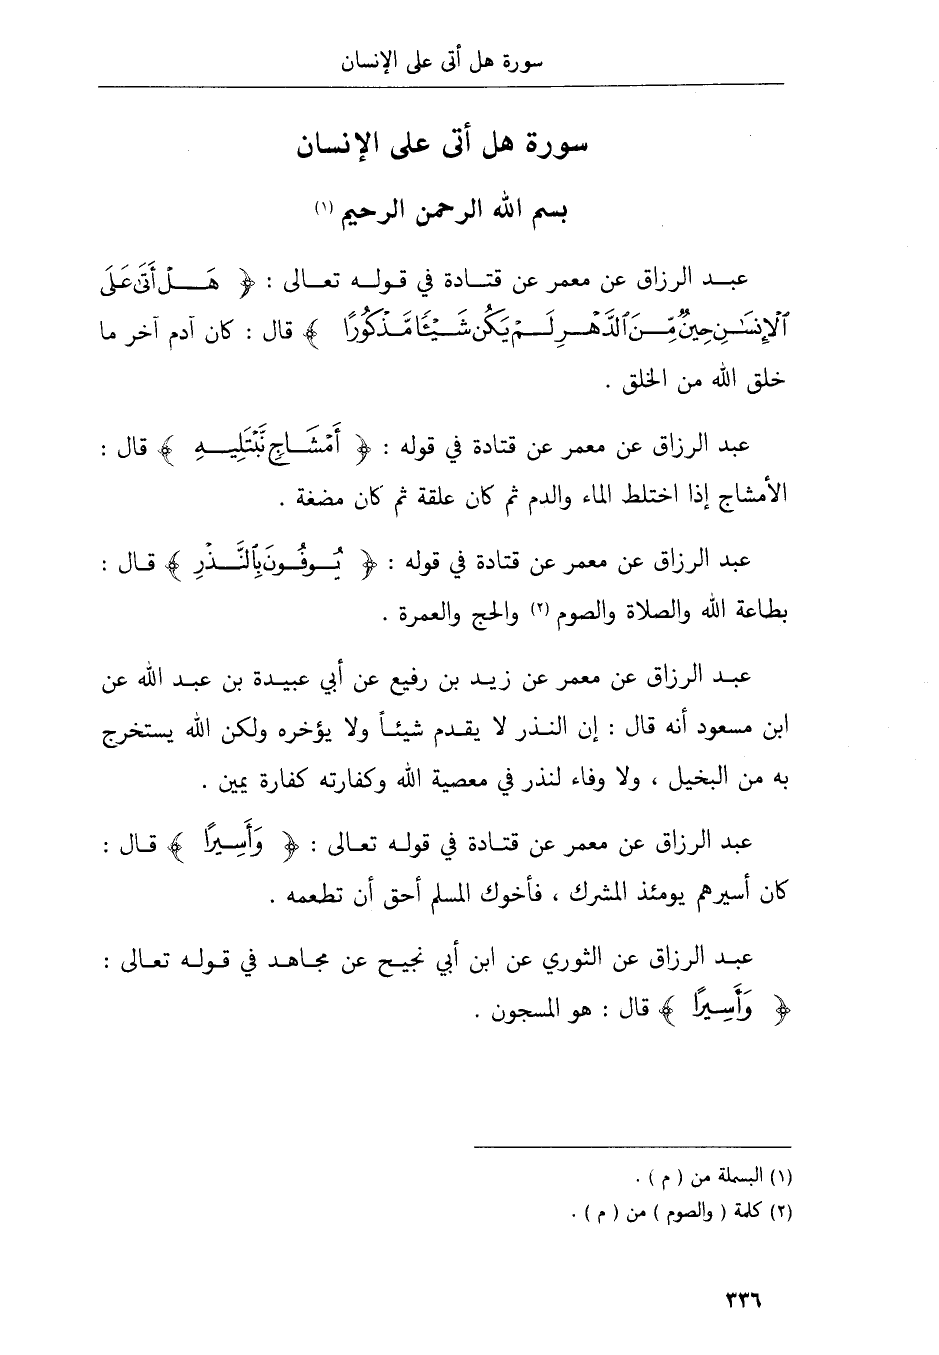 سورة هل أتى على الإنسان
سورة هل أتى على الإنسان
بسم الله الرحمن الرحيم (١)
عبد الرزاق عن معمر عن قتادة في قوله تعالى : ﴿ هَلْ أَتَىٰ عَلَى
ٱلْإِنسَٰنِ حِينٌ مِّنَ ٱلدَّهْرِ لَمْ يَكُن شَيْـًٔا مَّذْكُورًا ﴾ قال : كان آدم آخر ما
خلق الله من الخلق .
عبد الرزاق عن معمر عن قتادة في قوله : ﴿ أَمْشَاجٍ نَّبْتَلِيهِ ﴾ قال :
الأمشاج إذا اختلط الماء والدم ثم كان علقة ثم كان مضغة .
عبد الرزاق عن معمر عن قتادة في قوله : ﴿ يُوفُونَ بِٱلنَّذْرِ ﴾ قال :
بطاعة الله والصلاة والصوم (٢) والحج والعمرة .
عبد الرزاق عن معمر عن زيد بن رفيع عن أبي عبيدة بن عبد الله عن
ابن مسعود أنه قال : إن النذر لا يقدم شيئاً ولا يؤخره ولكن الله يستخرج
به من البخيل ، ولا وفاء لنذر في معصية الله وكفارته كفارة يمين .
عبد الرزاق عن معمر عن قتادة في قوله تعالى : ﴿ وَأَسِيرًا ﴾ قال :
كان أسيرهم يومئذ المشرك ، فأخوك المسلم أحق أن تطعمه .
عبد الرزاق عن الثوري عن ابن أبي نجيح عن مجاهد في قوله تعالى :
﴿ وَأَسِيرًا ﴾ قال : هو المسجون .
(١) البسملة من ( م ) .
(٢) كلمة ( والصوم ) من ( م ) .
٣٣٦